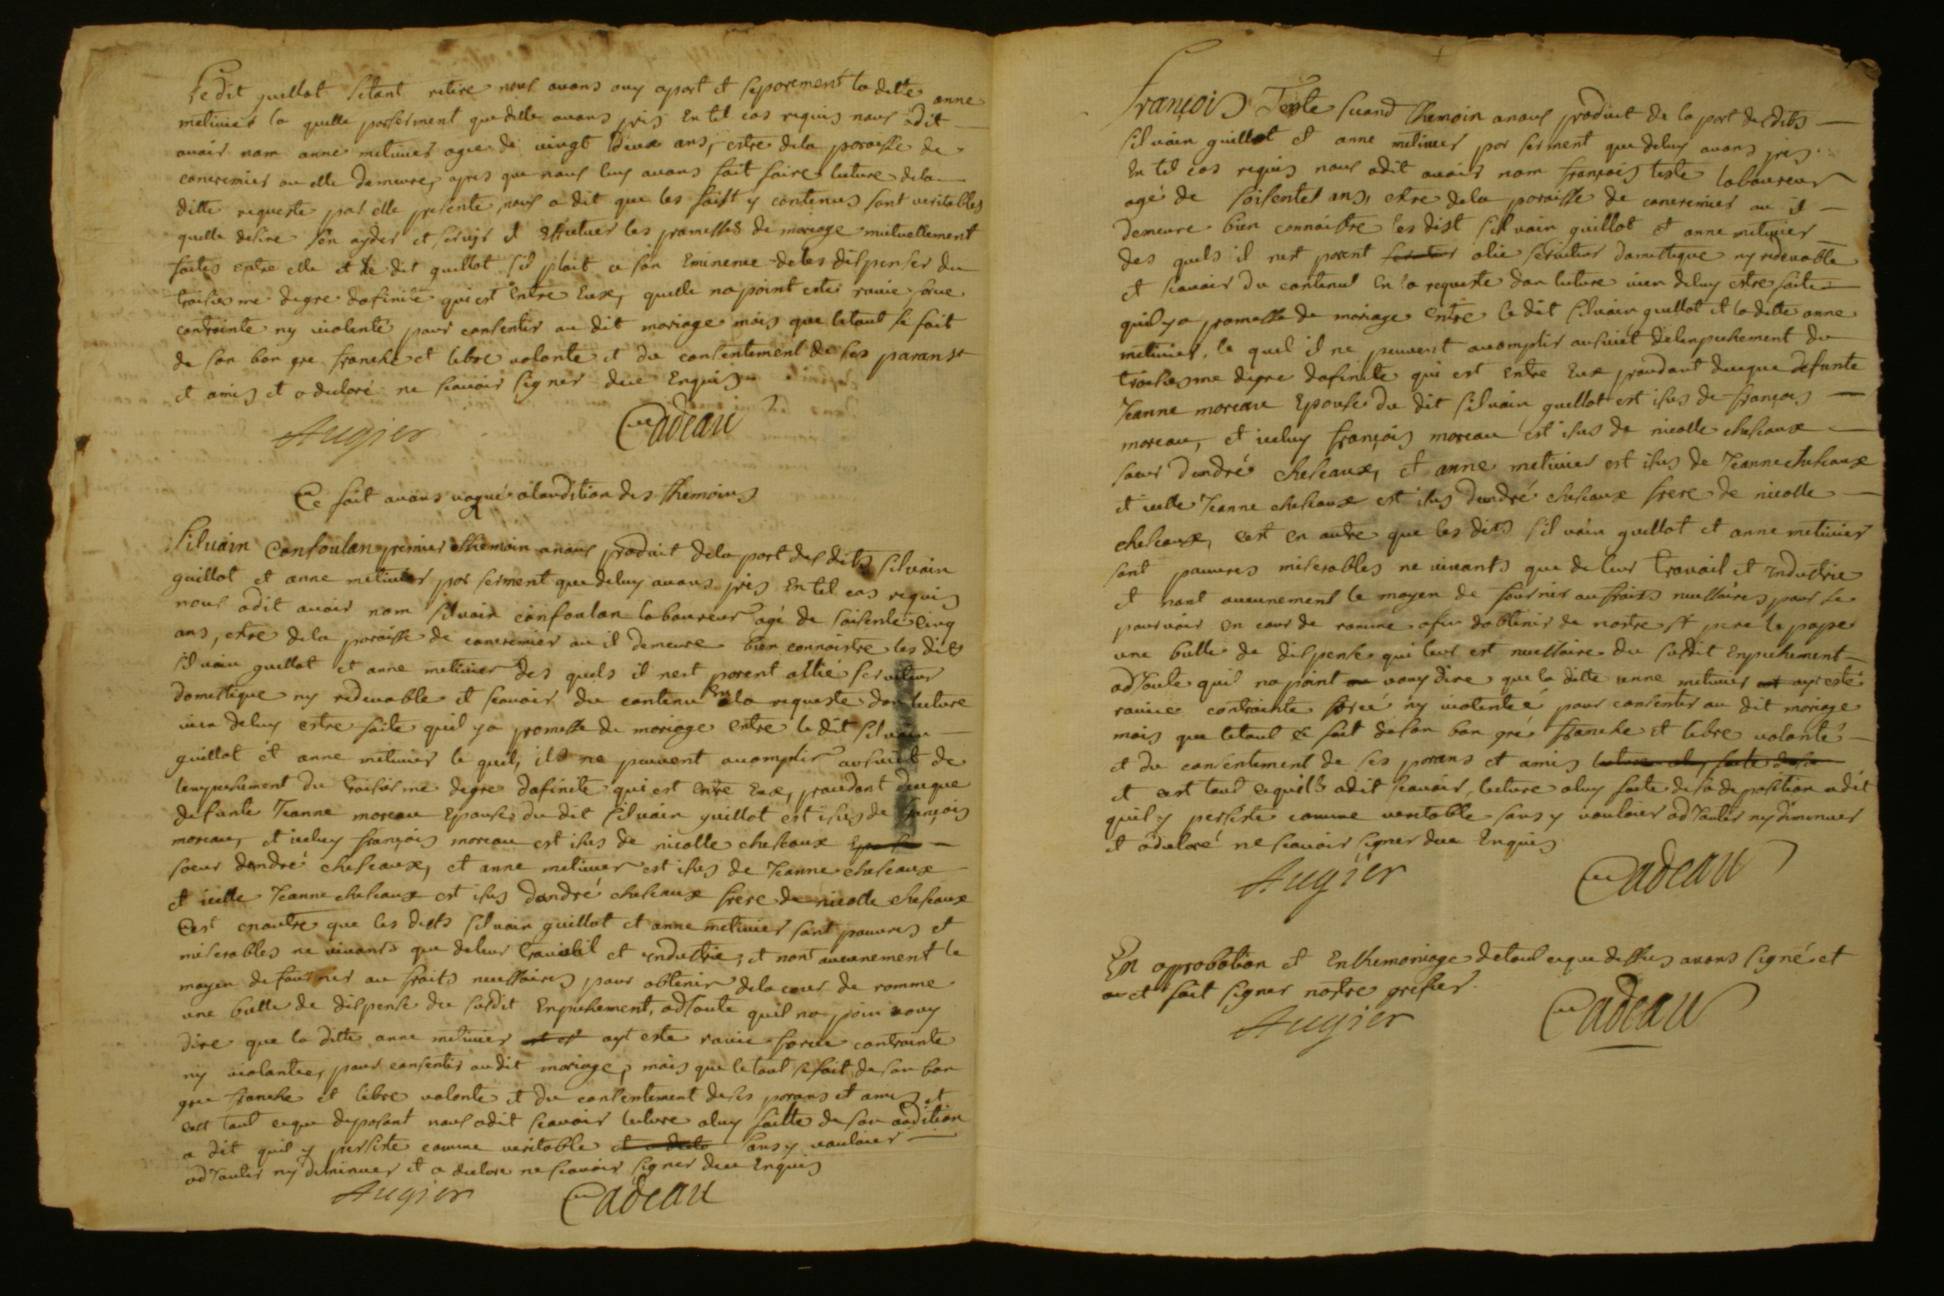 Ledit guillot setant retire nous avons ouy apart et separement la ditte anne
metivier la quelle par serment que delle avons pris En tel cas requis nous adit
avoir nom anne metivier agee de vingt deux ans, estre de la paroisse de
concremier ou elle demeure, apres que nous luy avons fait faire lecture de la
ditte requeste par elle presente, nous a dit que les faist y contenus sont veritables
quelle desire s'en ayder et servir et effectuer les promesses de mariage mutuellement
faites entre elle et le dit guillot sil plait a son Eminence de les dispenser du
troisiesme degre dafinite qui est Entre Eux, quelle na point estée ravie force
contrainte ny violenté pour consentir au dit mariage mais que letout se fait
de son bon gre franche et libre volonte et du consentement de ses parans
et amis et a declaré ne scavoir signer dece Enquis
Augier Cadeau
Ce fait avons vaqué alaudition des themoins
Silvain Confoulan premier themoin anous produit de la part des dits silvain
guillot et anne metivier par serment que deluy avons pris En tel cas requis
nous adit avoir nom silvain confoulan laboureur agé de soisente Cinq
ans, estre de la paroisse de concremier ou il demeure bien connoistre les dits
silvain guillot et anne metivier des quels il nest parent allié serviteur
domestique ny redevable et scavoir du contenu En la requeste dont lecture
vien deluy estre faite quil y a promesse de mariage entre le dit silvain
guillot et anne metivier le quel, ils ne peuvent acomplir au suiet de
lempechement du troisiesme degre dafinite qui est entre Eux, proudant de ce que
defunte Jeanne moreau Epouse du dit silvain guillot est isus de françois
moreau, et iceluy françois moreau est isus de nicolle cheseaux
soeur dandré cheseaux, et anne metivier est isus de Jeanne cheseaux
et icelle Jeanne cheseaux est isus dandré cheseaux frere de nicolle cheseaux
Cest enoutre que les dicts silvain guillot et anne metivier sont pauvres et
miserables ne vivants que deleur travail et industrie, et nont aucunement le
moyen de fournir au fraits necessaires pour obtenir de la cour de romme
une bulle de dispense du susdit Enpechement, adjoute quil na poin ouy
dire que la ditte anne metivier ayt este ravie force contrainte
ny violantee, pour consentir audit mariage, mais que letout se fait de son bon
gre franche et libre volonte et du consentement de ses parans et amis et
cest tout ceque deposant nous adit scavoir lecture aluy faitte de son audition
a dit quil y persiste comme veritable sans y vouloir
adjouter ny diminuer et a declare ne scavoir signer dece Enquis
Augier Cadeau
François Teste second themoin anous produit de la part des dits
silvain guillot et anne metivier par serment que deluy avons pris
En tel cas requis nous adit avoir nom françois teste laboureur
agé de soisente ans, estre de la paroisse de concremier ou il
demeure bien connoistre les dist silvain guillot et anne metivier
des quels il nest parent alié serviteur domestique ny redevable
et scavoir du contenut En la requeste dont lecture vien deluy estre faite
quil y a promesse de mariage entre le dit silvain guillot et la ditte anne
metivier, le quel il ne peuvent acomplir au suiet delenpechement du
troisiesme degre dafinite qui est Entre Eux proudant de ce que defunte
Jeanne moreau Epouse du dit silvain guillot est isus de françois
moreau, et iceluy françois moreau est isus de nicolle cheseaux
soeur dandré cheseaux, et anne metivier est isus de Jeanne cheseaux
et icelle Jeanne cheseaux est isus dandré cheseaux frere de nicolle
cheseaux, cest en outre que les dits silvain guillot et anne metivier
sont pauvres miserables ne vivants que de leur travail et industrie
et nont aucunement le moyen de fournir au fraits necessaires pour se
pourvoir en cour de romme afin dobtenir de nostre st pere le pape
une bulle de dispense qui leur est necessaire du susdit Enpechement
adjoute quil na point ouy dire que la ditte anne metivier ayt esté
ravie contrainte forcé ny violentée pour consentir au dit mariage
mais que letout ce fait de son bon gré franche et libre volonté
et du consentement de ses parans et amis
et cest tout cequil adit scavoir, lecture aluy faite de sa deposition adit
quil y persiste comme veritable sans y vouloir adjouter ny diminuer
et adeclaré ne scavoir signer dece Enquis
Augier Cadeau
En aprobation et En themoniage detout ceque dessus avons signé et
et fait signer nostre grefier.
Augier Cadeau